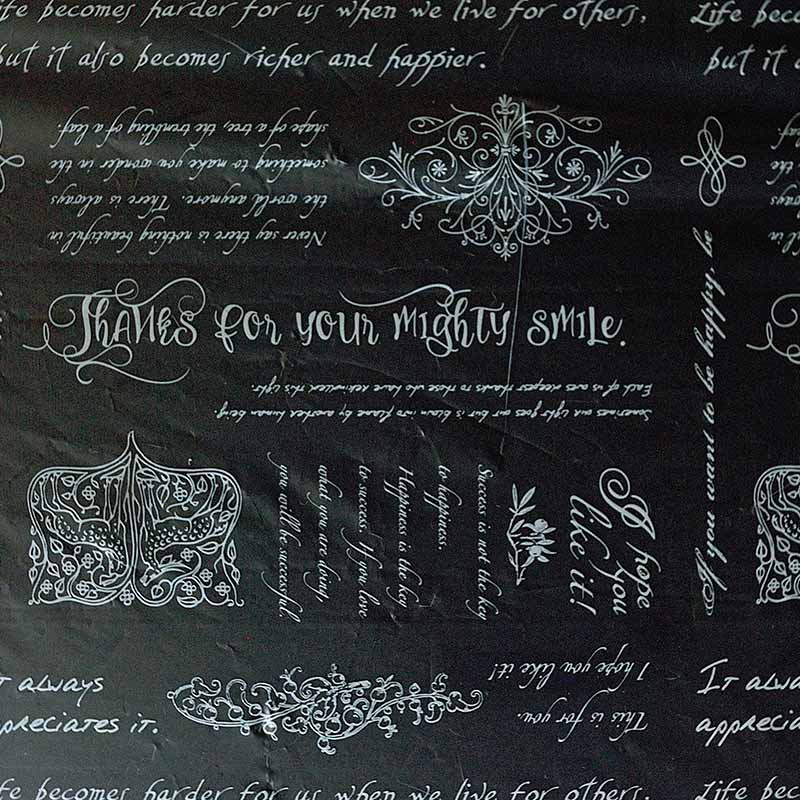 ife becomes harder for us when we live for others,
but it also becomes richer and happier.
Life beco
but it a
Never say there is nothing beautiful in
the world anymore. There is always
something to make you wonder in the
shape of a tree, the trembling of a leaf.
Thanks for your mighty smile.
Sometimes our light goes out but is blown into flame by another human being.
Each of us owes deepest thanks to those who have rekindled this light.
If you want to be happy, be
Success is not the key
to happiness.
Happiness is the key
to success. If you love
what you are doing,
you will be successful.
I hope
you
like it!
This is for you.
I hope you like it!
T always
ppreciates it.
It alwa
apprecia
fe becomes harder for us when we live for others,
Life beco